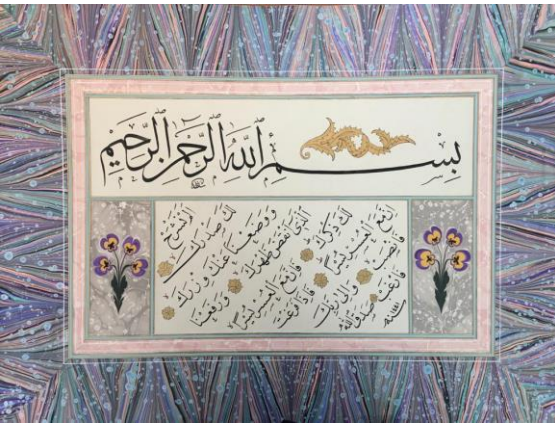 بِسْمِ اللَّهِ الرَّحْمٰنِ الرَّحِيمِ
اَلَمْ نَشْرَحْ
لَكَ صَدْرَكَ
وَوَضَعْنَا عَنْكَ وِزْرَكَ
اَلَّذٖى اَنْقَضَ ظَهْرَكَ وَرَفَعْنَا
لَكَ ذِكْرَكَ فَاِنَّ مَعَ الْعُسْرِ يُسْرًا
اِنَّ مَعَ الْعُسْرِ يُسْرًا فَاِذَا فَرَغْتَ
فَانْصَبْ وَاِلٰى رَبِّكَ
فَارْغَبْ صَدَقَ اللّٰه